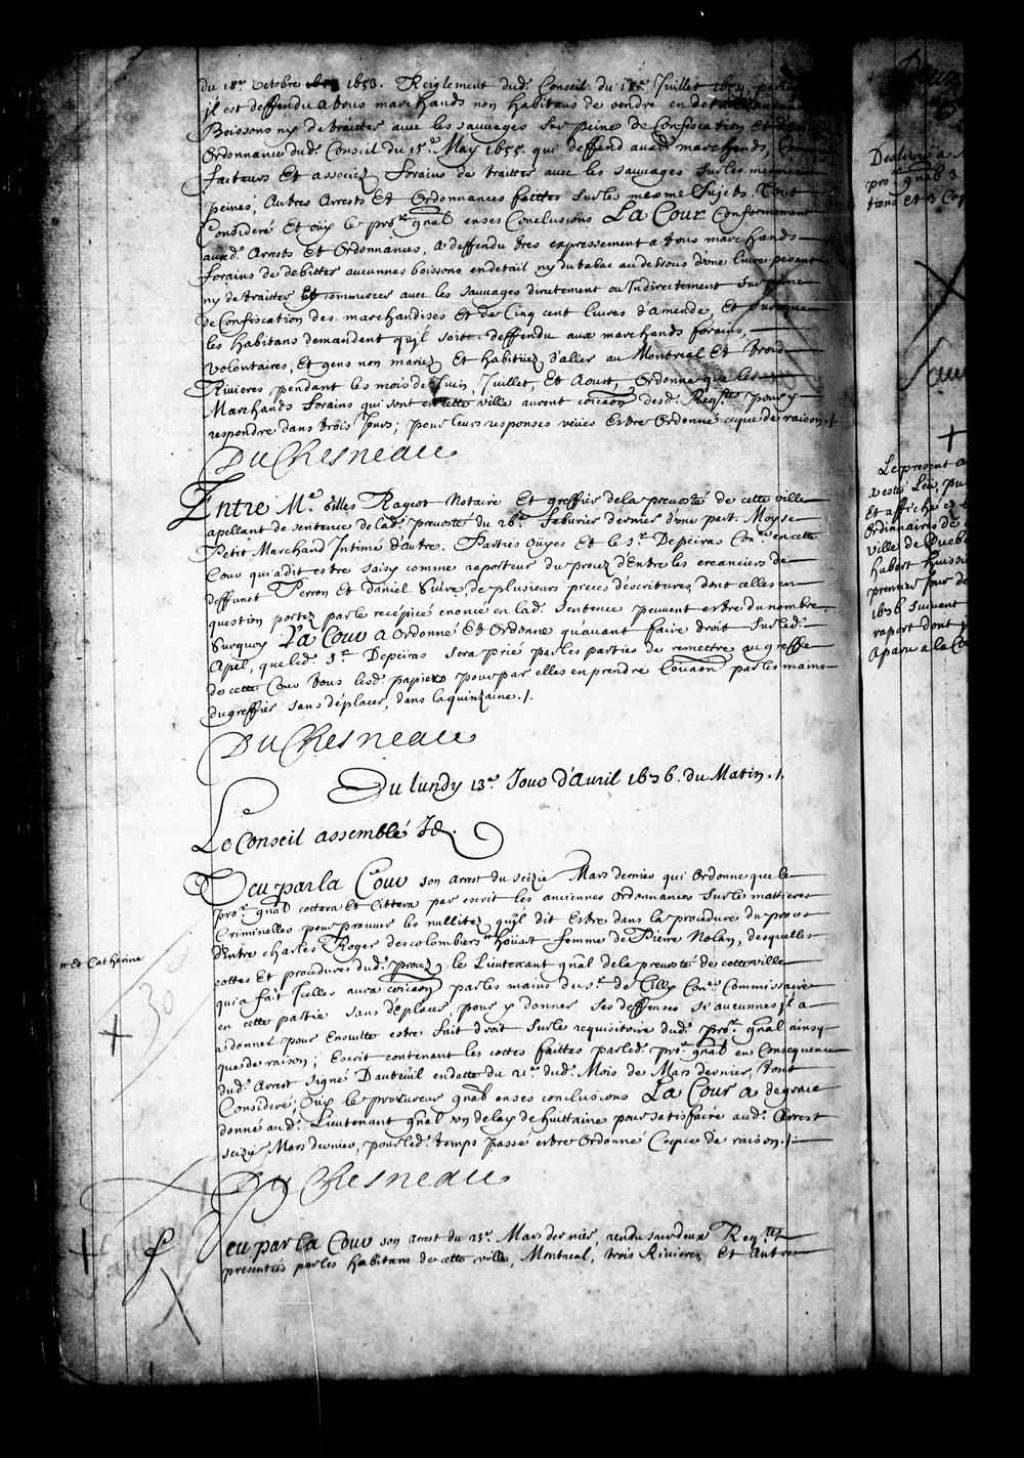 du 18.e octobre 1653. Reiglement dud. Conseil du 18.e Juillet
jl est deffendu a tous marchands non habitans de vendre en detail
Boissons ny de traitter auec les sauuages sur peine de Confiscation Et
Ordonnance dud. Conseil du 15.e May 1655. qui deffend auxd. marchands,
facteurs Et associez forains de traitter auec les sauuages sur les mesmes
peines, Autres Arrests Et Ordonnances faittes sur le mesme sujet. Tout
Consideré Et oüy le pro.r gñal en ses Conclusions La Cour Conformement
auxd. Arrests et Ordonnances, a deffendu tres expressement a tous marchands
forains de debitter aucunnes boissons en detail ny du tabac au dessous d'une liure pesant
ny de traitter Et commercer auec les sauuages directement ou Indirectement sur peine
de Confiscation des marchandises Et de Cinq cent liures d'amende, Et sur ce que
les habitans demandent qu'jl soit deffendu aux marchands forains,
volontaires, Et gens non mariez Et habituez d'aller au Montreal Et trois
Riuieres pendant les mois de Juin, Juillet, Et Aoust, Ordonne que les
Marchands forains qui sont en cette ville auront coïcaõn desd. Req.tes pour y
respondre dans trois jours; pour leurs responses veües Estre Ordonné ce que de raison ./.
DuChesneau
Entre M.e Gilles Rageot Notaire Et greffier de la preuosté de cette ville
apellant de sentence de lad. preuosté du 26.e feburier dernier d'une part. Moyse
Petit Marchand Intimé d'autre. Parties Oüyes Et le S.r Depeiras Con.er en cette
Cour qui a dit estre saisy comme raporteur du procez d'Entre les creanciers de
deffunct Perron et Daniel Suire, de plusieurs pieces d'escritures, dont celles en
question portez par le recépicé enoncé en lad. sentence peuuent estre du nombre
Surquoy La Cour a Ordonné Et Ordonne qu'auant faire droit sur led.
Apel, que led. S.r Depeiras sera prié par les parties de remettre au greffe
de cette Cour tous lesd. papiers pour par elles en prendre Coïcaõn par les mains
du greffier sans déplacer, dans la quinzaine ./.
DuChesneau
Du lundy 13.e Jour d'auril 1676. du Matin ./.
Le Conseil assemblé
Veu par la Cour son arrest du seizie Mars dernier qui Ordonne que le
pro.r gñal cottera Et Cittera par escrit les anciennes Ordonnances sur les mattieres
Criminelles pour prouuer les nullitez qu'jl dit Estre dans la procedure du proces
d'Entre charles Roger descolombiers hoüart femme de Pierre Nolan, desquelles
Et Catherine
cottes Et procedures dud. procez, le Lieutenant gñal de la preuosté de cette ville
qui a fait Jcelles aura coïcaõn par les mains du sr. de Tilly Con.er Commissaire
en cette partie sans déplacer, pour y donner ses deffenses si aucunnes jl a
a donner pour Ensuitte estre fait droit sur le requisitoire dud. pro.r gñal ainsy
que de raison; Escrit contenant les cottes faittes par led. pro.r gñal en Consequence
dud. Arrest signé Dauteüil en datte du 21.e dud. Mois de Mars dernier, tout
Consideré, Oüy le procureur gñal en ses conclusions La Cour a de grace
donné aud. Lieutenant gñal vn delay de huittaine pour satisfaire aud. Arrest
seize Mars dernier, pour led. temps passé estre Ordonné Ce que de raison ./.
DuChesneau
Veu par la Cour son arrest du 23.e Mars dernier, rendu sur deux Req.tes
presentées par les habitans de cette ville, Montreal, trois Riuieres, Et autres
30
Le present a
a esté Leu, pu
Et affiché
Ordinaires de
ville de Queb
hubert huissi
premier jour de
1676 suiuant
raport dont
Aparu a la Co